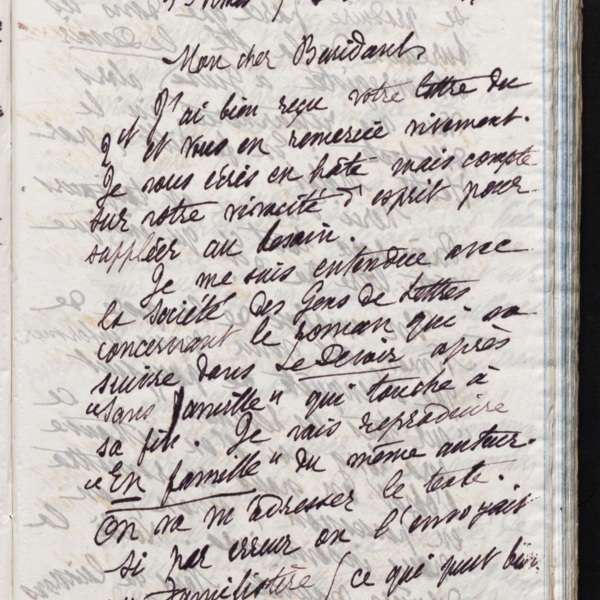 Mon cher Buridant,
J'ai bien reçu votre lettre du
2 ct et vous en remercie vivement.
Je vous écris en hâte mais compte
sur votre vivacité d'esprit pour
suppléer au besoin.
Je me suis entendue avec
la Société des Gens de Lettres
concernant le roman qui va
suivre dans Le Devoir après
"Sans famille" qui touche à
sa fin. Je vais reproduire
"En famille" du même auteur.
On va m'adresser le texte.
Si par erreur on l'envoyait
Familistère (ce qui peut bien